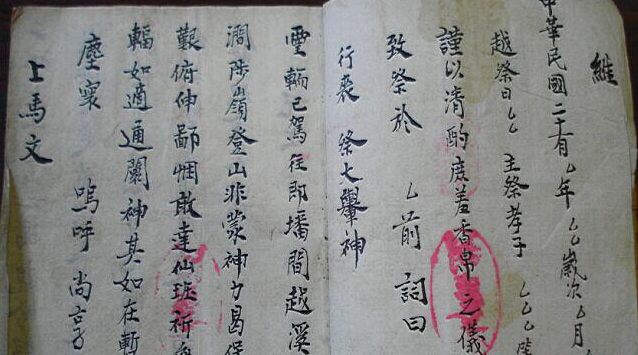 維
中華民國二十有乙年乙乙歲次乙月
越祭日乙乙主祭孝子乙乙乙
謹以清酌庶羞香帛之儀
致祭於乙前詞曰
行喪祭七轝神
靈輀已駕往即墦間越溪
澗陟嶺登山非蒙神力曷保
艱俯伸鄙悃敢達仙班祈
輻如適通闤神其如在暫
塵寰嗚呼尚享
上馬文